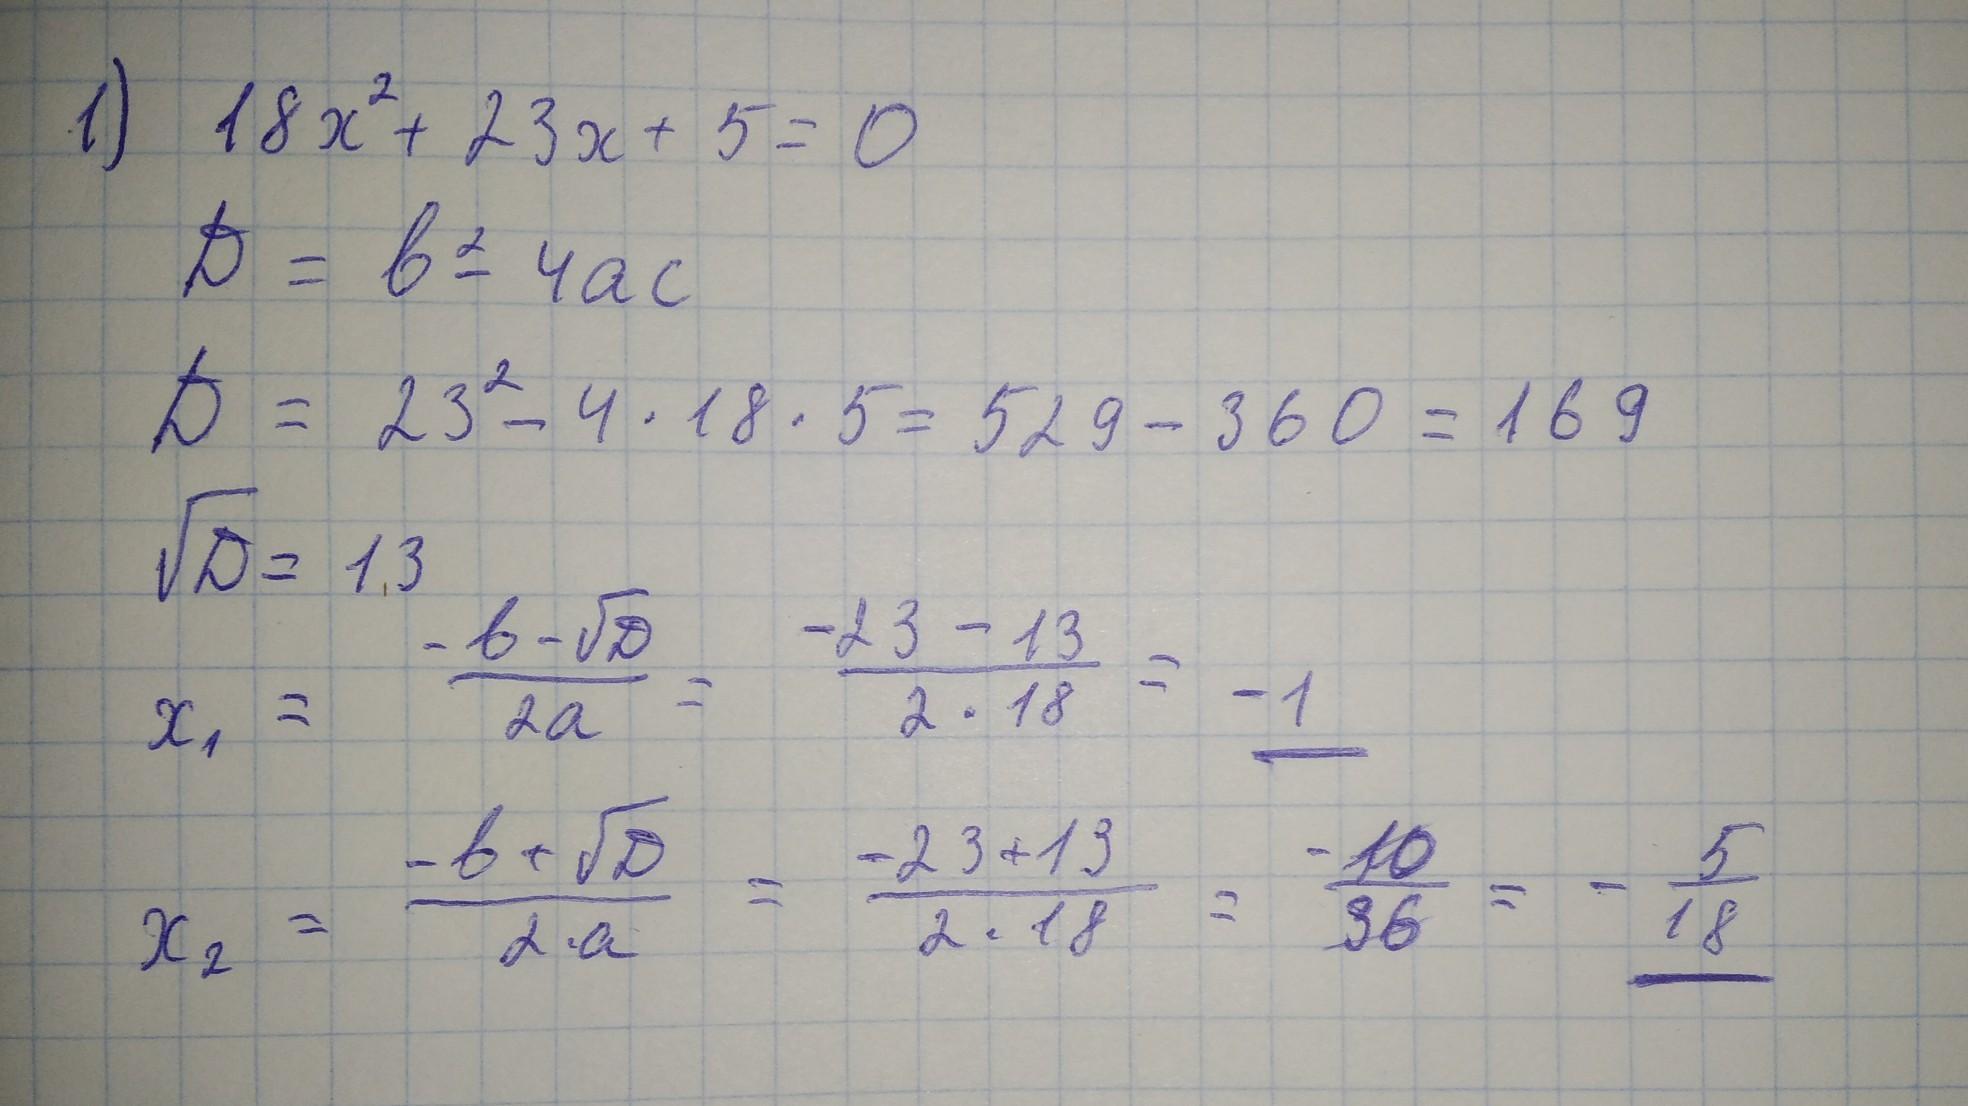 1) 18x² + 23x + 5 = 0
D = b² - 4ac
D = 23² - 4 · 18 · 5 = 529 - 360 = 169
√D = 13
x₁ = (-b - √D)/(2a) = (-23 - 13)/(2 · 18) = -1
x₂ = (-b + √D)/(2·a) = (-23 + 13)/(2 · 18) = -10/36 = -5/18